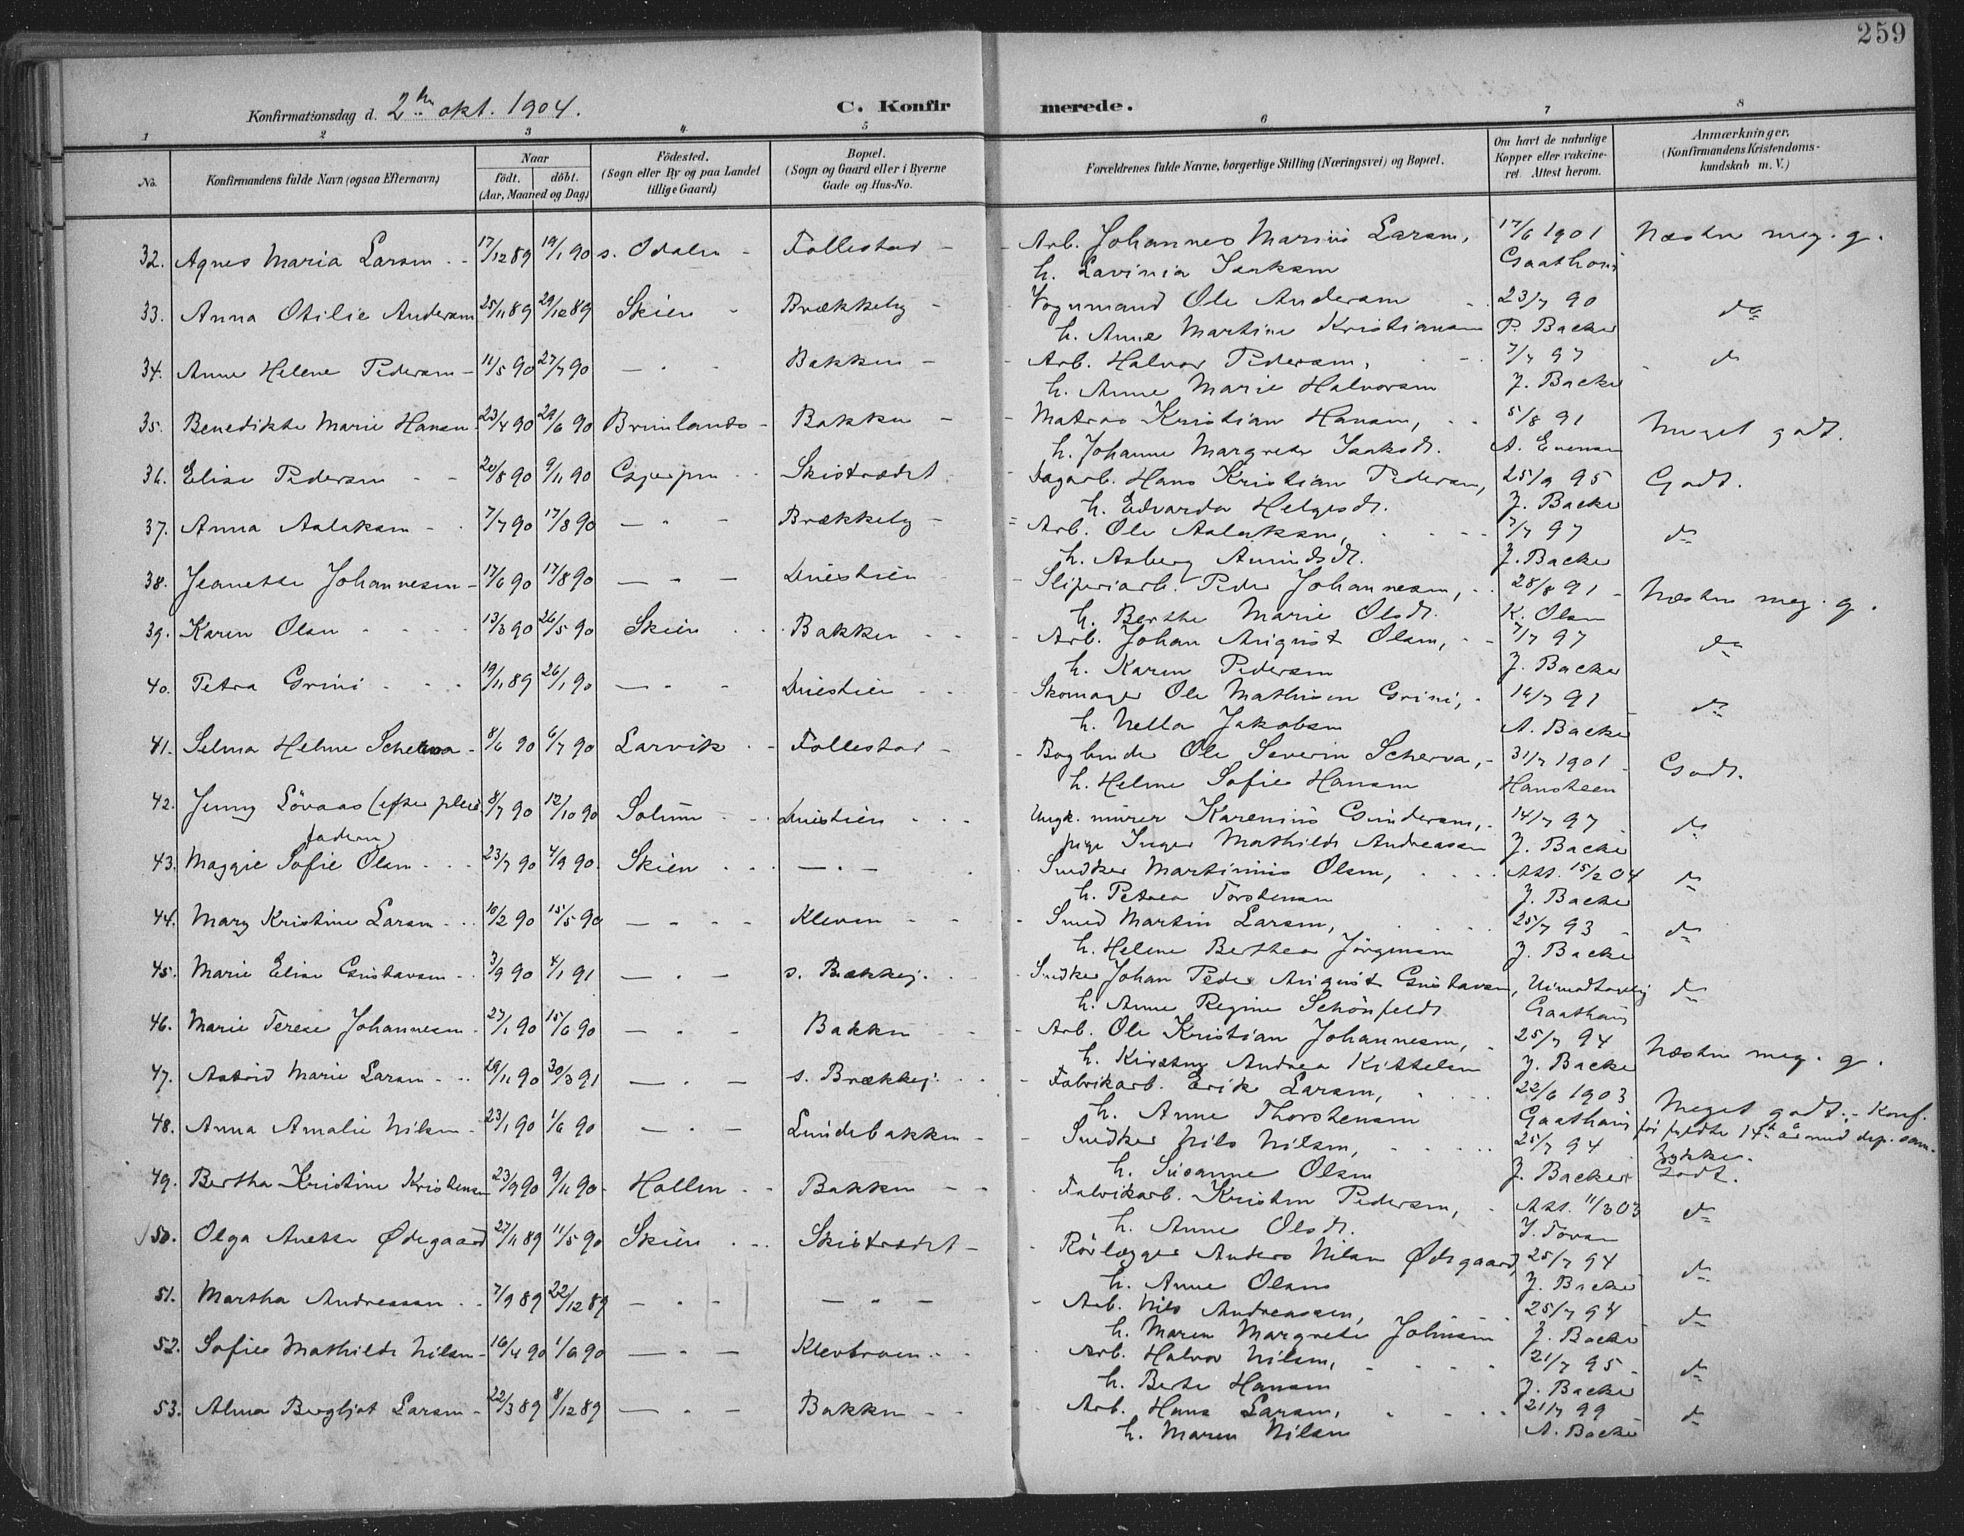 259
Konfirmationsdag d. 2den okt. 1904.
C. Konfirmerede.
1 2 3 4 5 6 7 8
No.
Konfirmandens fulde Navn (ogsaa Efternavn)
Naar
födt. döbt.
(Aar, Maaned og Dag)
Födested.
(Sogn eller By og paa Landet
tillige Gaard)
Bopæl.
(Sogn og Gaard eller i Byerne
Gade og Hus-No.
Forældrenes fulde Navne, borgerlige Stilling (Næringsvei) og Bopæl.
Om havt de naturlige
Kopper eller vakcine-
ret. Attest herom.
Anmærkninger.
(Konfirmandens Kristendoms-
kundskab m. V.)
32. Agnes Maria Larsen 17/12 89 19/1 90 s. Odalen Follestad Arb. Johannes Marius Larsen, 17/6 1901 Næsten meg. g.
h. Lavinia Isaksen Gaathaug
33. Anna Otilie Andersen 25/11 89 29/12 89 Skien Brækkeby Vognmand Ole Andersen 23/7 90 do
h. Anne Martine Kristiansen P. Backer
34. Anne Helene Pedersen 11/5 90 27/7 90 — " — Bakken Arb. Halvor Pedersen, 7/7 97 do
h. Anne Marie Halvorsen J. Backer
35. Benedikte Marie Hansen 23/4 90 29/6 90 Brunlanæs Bakken Matros Kristian Hansen, 5/8 91 Meget godt.
h. Johanne Margrete Isaksdt. A. Evensen
36. Elise Pedersen 20/8 90 9/11 90 Gjerpen Skistrædet Dagarb. Hans Kristian Pedersen, 25/9 95 Godt.
h. Edvarda Helgesdt. J. Backer
37. Anna Aslaksen 7/7 90 17/8 90 — " — Brækkeby Arb. Ole Aslaksen, 7/7 97 do
h. Asberg Amundsdt. J. Backer
38. Jeanette Johannesen 17/6 90 17/8 90 — " — Duestien Sliperiarb. Peder Johannesen, 28/8 91 Næsten meg. g.
h. Berthe Marie Olsdt. K. Olsen
39. Karen Olsen 13/3 90 26/5 90 Skien Bakken Arb. Johan August Olsen, 7/7 97 do
h. Karen Pedersen J. Backer
40. Petra Grini 19/11 89 26/1 90 — " — Duestien Skomager Ole Mathisen Grini, 14/7 91 do
h. Nella Jakobsen A. Backer
41. Selma Helene Scherva 8/6 90 6/7 90 Larvik Follestad Bogbinder Ole Severin Scherva, 31/7 1901 Godt.
h. Helene Sofie Hansen Hansteen
42. Jenny Lövaas (efter pleie 8/7 90 12/10 90 Solum Duestien Ungk. murer Karenius Gundersen, 14/7 97 do
faderen) pige Inger Mathilde Andreassen J. Backer
43. Maggie Sofie Olsen 23/7 90 4/9 90 Skien — " — Snedker Martinius Olsen, Att. 15/2 04 do
h. Petrea Torstensen J. Backer
44. Mary Kristine Larsen 16/2 90 15/5 90 — " — Kleven Smed Martin Larsen, 25/7 93 do
h. Helene Berthea Jörgensen J. Backer
45. Marie Elise Gustavsen 3/9 90 4/1 91 — " — s. Brækkej. Snedker Johan Peder August Gustavsen, Uimodtagelig do
h. Anne Regine Schönfeldt Gaathaug
46. Marie Terese Johannesen 27/1 90 15/6 90 — " — Bakken Arb. Ole Kristian Johannesen, 25/7 94 Næsten meg. g.
h. Kirsten Andrea Kittelsen J. Backer
47. Astrid Marie Larsen 29/11 90 30/3 91 — " — s. Brækkej. Fabrikarb. Erik Larsen, 22/6 1903 Meget godt. - Konf.
h. Anne Thorstensen Gaathaug før fyldte 14 år med dep. sam-
48. Anna Amalie Nilsen 23/1 90 1/6 90 — " — Lundebakken Snedker Nils Nilsen, 25/7 94 tykke.
h. Susanne Olsen J. Backer Godt.
49. Bertha Kristine Kristensen 23/9 90 9/11 90 Hollen Bakken Fabrikarb. Kristen Pedersen, Att. 11/3 03 do
h. Anne Olsdt. J. Tovsen
50. Olga Anette Ødegaard 27/11 89 11/5 90 Skien Skistrædet Rörlægger Anders Nilsen Ødegaard, 25/7 94 do
h. Anne Olsen J. Backer
51. Martha Andreassen 7/9 89 22/12 89 — " — — " — Arb. Nils Andreassen, 25/7 94 do
h. Maren Margrete Johnsen J. Backer
52. Sofie Mathilde Nilsen 16/4 90 1/6 90 — " — Klevbroen Arb. Halvor Nilsen, 21/7 95 do
h. Berte Hansen J. Backer
53. Alma Bergljot Larsen 22/3 89 8/12 89 — " — Bakken Arb. Hans Larsen, 21/7 99 do
h. Maren Nilsen A. Backer